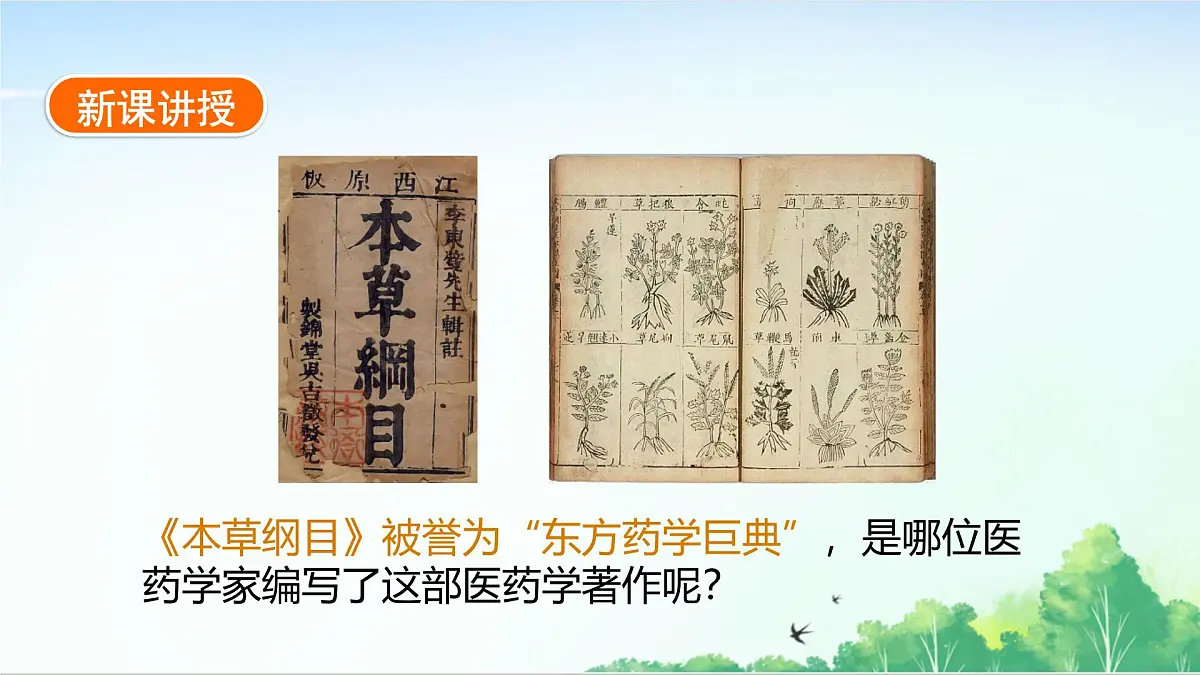 新课讲授
江西原板
李東璧先生輯註
本草綱目
製錦堂吳吉徵發兌
鱧腸
狼把草
狗尾草
鼠尾草
馬鞭草
《本草纲目》被誉为“东方药学巨典”，是哪位医
药学家编写了这部医药学著作呢？